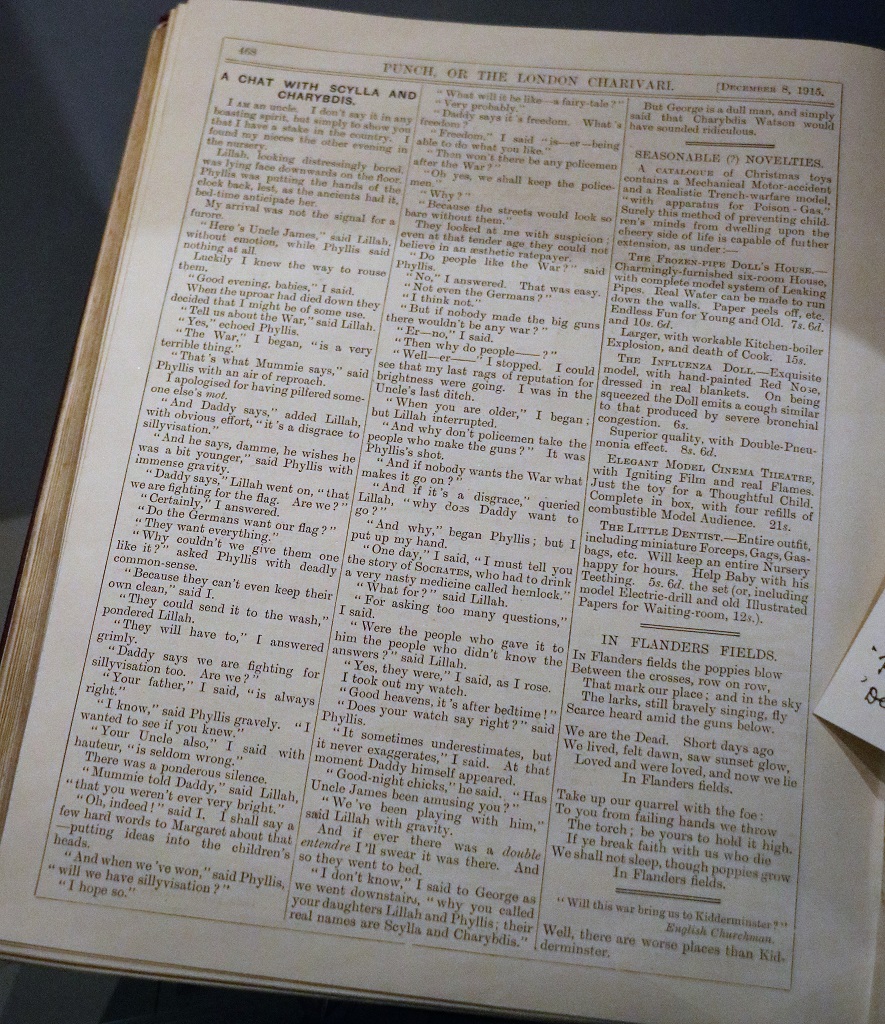 468
PUNCH, OR THE LONDON CHARIVARI.
[DECEMBER 8, 1915.
A CHAT WITH SCYLLA AND
CHARYBDIS.
I AM an uncle. I don't say it in any
boasting spirit, but simply to show you
that I have a stake in the country. I
found my nieces the other evening in
the nursery.
Lillah, looking distressingly bored,
was lying face downwards on the floor.
Phyllis was putting the hands of the
clock back, lest, as the ancients had it,
bed-time anticipate her.
My arrival was not the signal for a
furore.
"Here's Uncle James," said Lillah,
without emotion, while Phyllis said
nothing at all.
Luckily I knew the way to rouse
them.
"Good evening, babies," I said.
When the uproar had died down they
decided that I might be of some use.
"Tell us about the War," said Lillah.
"Yes," echoed Phyllis.
"The War," I began, "is a very
terrible thing."
"That's what Mummie says," said
Phyllis with an air of reproach.
I apologised for having pilfered some-
one else's mot.
"And Daddy says," added Lillah,
with obvious effort, "it's a disgrace to
sillyvisation."
"And he says, damme, he wishes he
was a bit younger," said Phyllis with
immense gravity.
"Daddy says," Lillah went on, "that
we are fighting for the flag. Are we?"
"Certainly," I answered.
"Do the Germans want our flag?"
"They want everything."
"Why couldn't we give them one
like it?" asked Phyllis with deadly
common-sense.
"Because they can't even keep their
own clean," said I.
"They could send it to the wash,"
pondered Lillah.
"They will have to," I answered
grimly.
"Daddy says we are fighting for
sillyvisation too. Are we?"
"Your father," I said, "is always
right."
"I know," said Phyllis gravely. "I
wanted to see if you knew."
"Your Uncle also," I said with
hauteur, "is seldom wrong."
There was a ponderous silence.
"Mummie told Daddy," said Lillah,
"that you weren't ever very bright."
"Oh, indeed!" said I. I shall say a
few hard words to Margaret about that
—putting ideas into the children's
heads.
"And when we've won," said Phyllis,
"will we have sillyvisation?"
"I hope so."
"What will it be like—a fairy-tale?"
"Very probably."
"Daddy says it's freedom. What's
freedom?"
"Freedom," I said "is—er—being
able to do what you like."
"Then won't there be any policemen
after the War?"
"Oh yes, we shall keep the police-
men."
"Why?"
"Because the streets would look so
bare without them."
They looked at me with suspicion;
even at that tender age they could not
believe in an æsthetic ratepayer.
"Do people like the War?" said
Phyllis.
"No," I answered. That was easy.
"Not even the Germans?"
"I think not."
"But if nobody made the big guns
there wouldn't be any war?"
"Er—no," I said.
"Then why do people——?"
"Well—er——" I stopped. I could
see that my last rags of reputation for
brightness were going. I was in the
Uncle's last ditch.
"When you are older," I began;
but Lillah interrupted.
"And why don't policemen take the
people who make the guns?" It was
Phyllis's shot.
"And if nobody wants the War what
makes it go on?"
"And if it's a disgrace," queried
Lillah, "why does Daddy want to
go?"
"And why," began Phyllis; but I
put up my hand.
"One day," I said, "I must tell you
the story of SOCRATES, who had to drink
a very nasty medicine called hemlock."
"What for?" said Lillah.
"For asking too many questions,"
I said.
"Were the people who gave it to
him the people who didn't know the
answers?" said Lillah.
"Yes, they were," I said, as I rose.
I took out my watch.
"Good heavens, it's after bedtime!"
"Does your watch say right?" said
Phyllis.
"It sometimes underestimates, but
it never exaggerates," I said. At that
moment Daddy himself appeared.
"Good-night chicks," he said. "Has
Uncle James been amusing you?"
"We've been playing with him,"
said Lillah with gravity.
And if ever there was a double
entendre I'll swear it was there. And
so they went to bed.
"I don't know," I said to George as
we went downstairs, "why you called
your daughters Lillah and Phyllis; their
real names are Scylla and Charybdis."
But George is a dull man, and simply
said that Charybdis Watson would
have sounded ridiculous.
SEASONABLE (?) NOVELTIES.
A CATALOGUE of Christmas toys
contains a Mechanical Motor-accident
and a Realistic Trench-warfare model,
"with apparatus for Poison-Gas."
Surely this method of preventing child-
ren's minds from dwelling upon the
cheery side of life is capable of further
extension, as under:—
THE FROZEN-PIPE DOLL'S HOUSE.—
Charmingly-furnished six-room House,
with complete model system of Leaking
Pipes. Real Water can be made to run
down the walls. Paper peels off, etc.
Endless Fun for Young and Old. 7s. 6d.
and 10s. 6d.
Larger, with workable Kitchen-boiler
Explosion, and death of Cook. 15s.
THE INFLUENZA DOLL.—Exquisite
model, with hand-painted Red Nose,
dressed in real blankets. On being
squeezed the Doll emits a cough similar
to that produced by severe bronchial
congestion. 6s.
Superior quality, with Double-Pneu-
monia effect. 8s. 6d.
ELEGANT MODEL CINEMA THEATRE,
with Igniting Film and real Flames.
Just the toy for a Thoughtful Child.
Complete in box, with four refills of
combustible Model Audience. 21s.
THE LITTLE DENTIST.—Entire outfit,
including miniature Forceps, Gags, Gas-
bags, etc. Will keep an entire Nursery
happy for hours. Help Baby with his
Teething. 5s. 6d. the set (or, including
model Electric-drill and old Illustrated
Papers for Waiting-room, 12s.).
IN FLANDERS FIELDS.
In Flanders fields the poppies blow
Between the crosses, row on row,
That mark our place; and in the sky
The larks, still bravely singing, fly
Scarce heard amid the guns below.
We are the Dead. Short days ago
We lived, felt dawn, saw sunset glow,
Loved and were loved, and now we lie
In Flanders fields.
Take up our quarrel with the foe:
To you from failing hands we throw
The torch; be yours to hold it high.
If ye break faith with us who die
We shall not sleep, though poppies grow
In Flanders fields.
"Will this war bring us to Kidderminster?"
English Churchman.
Well, there are worse places than Kid-
derminster.